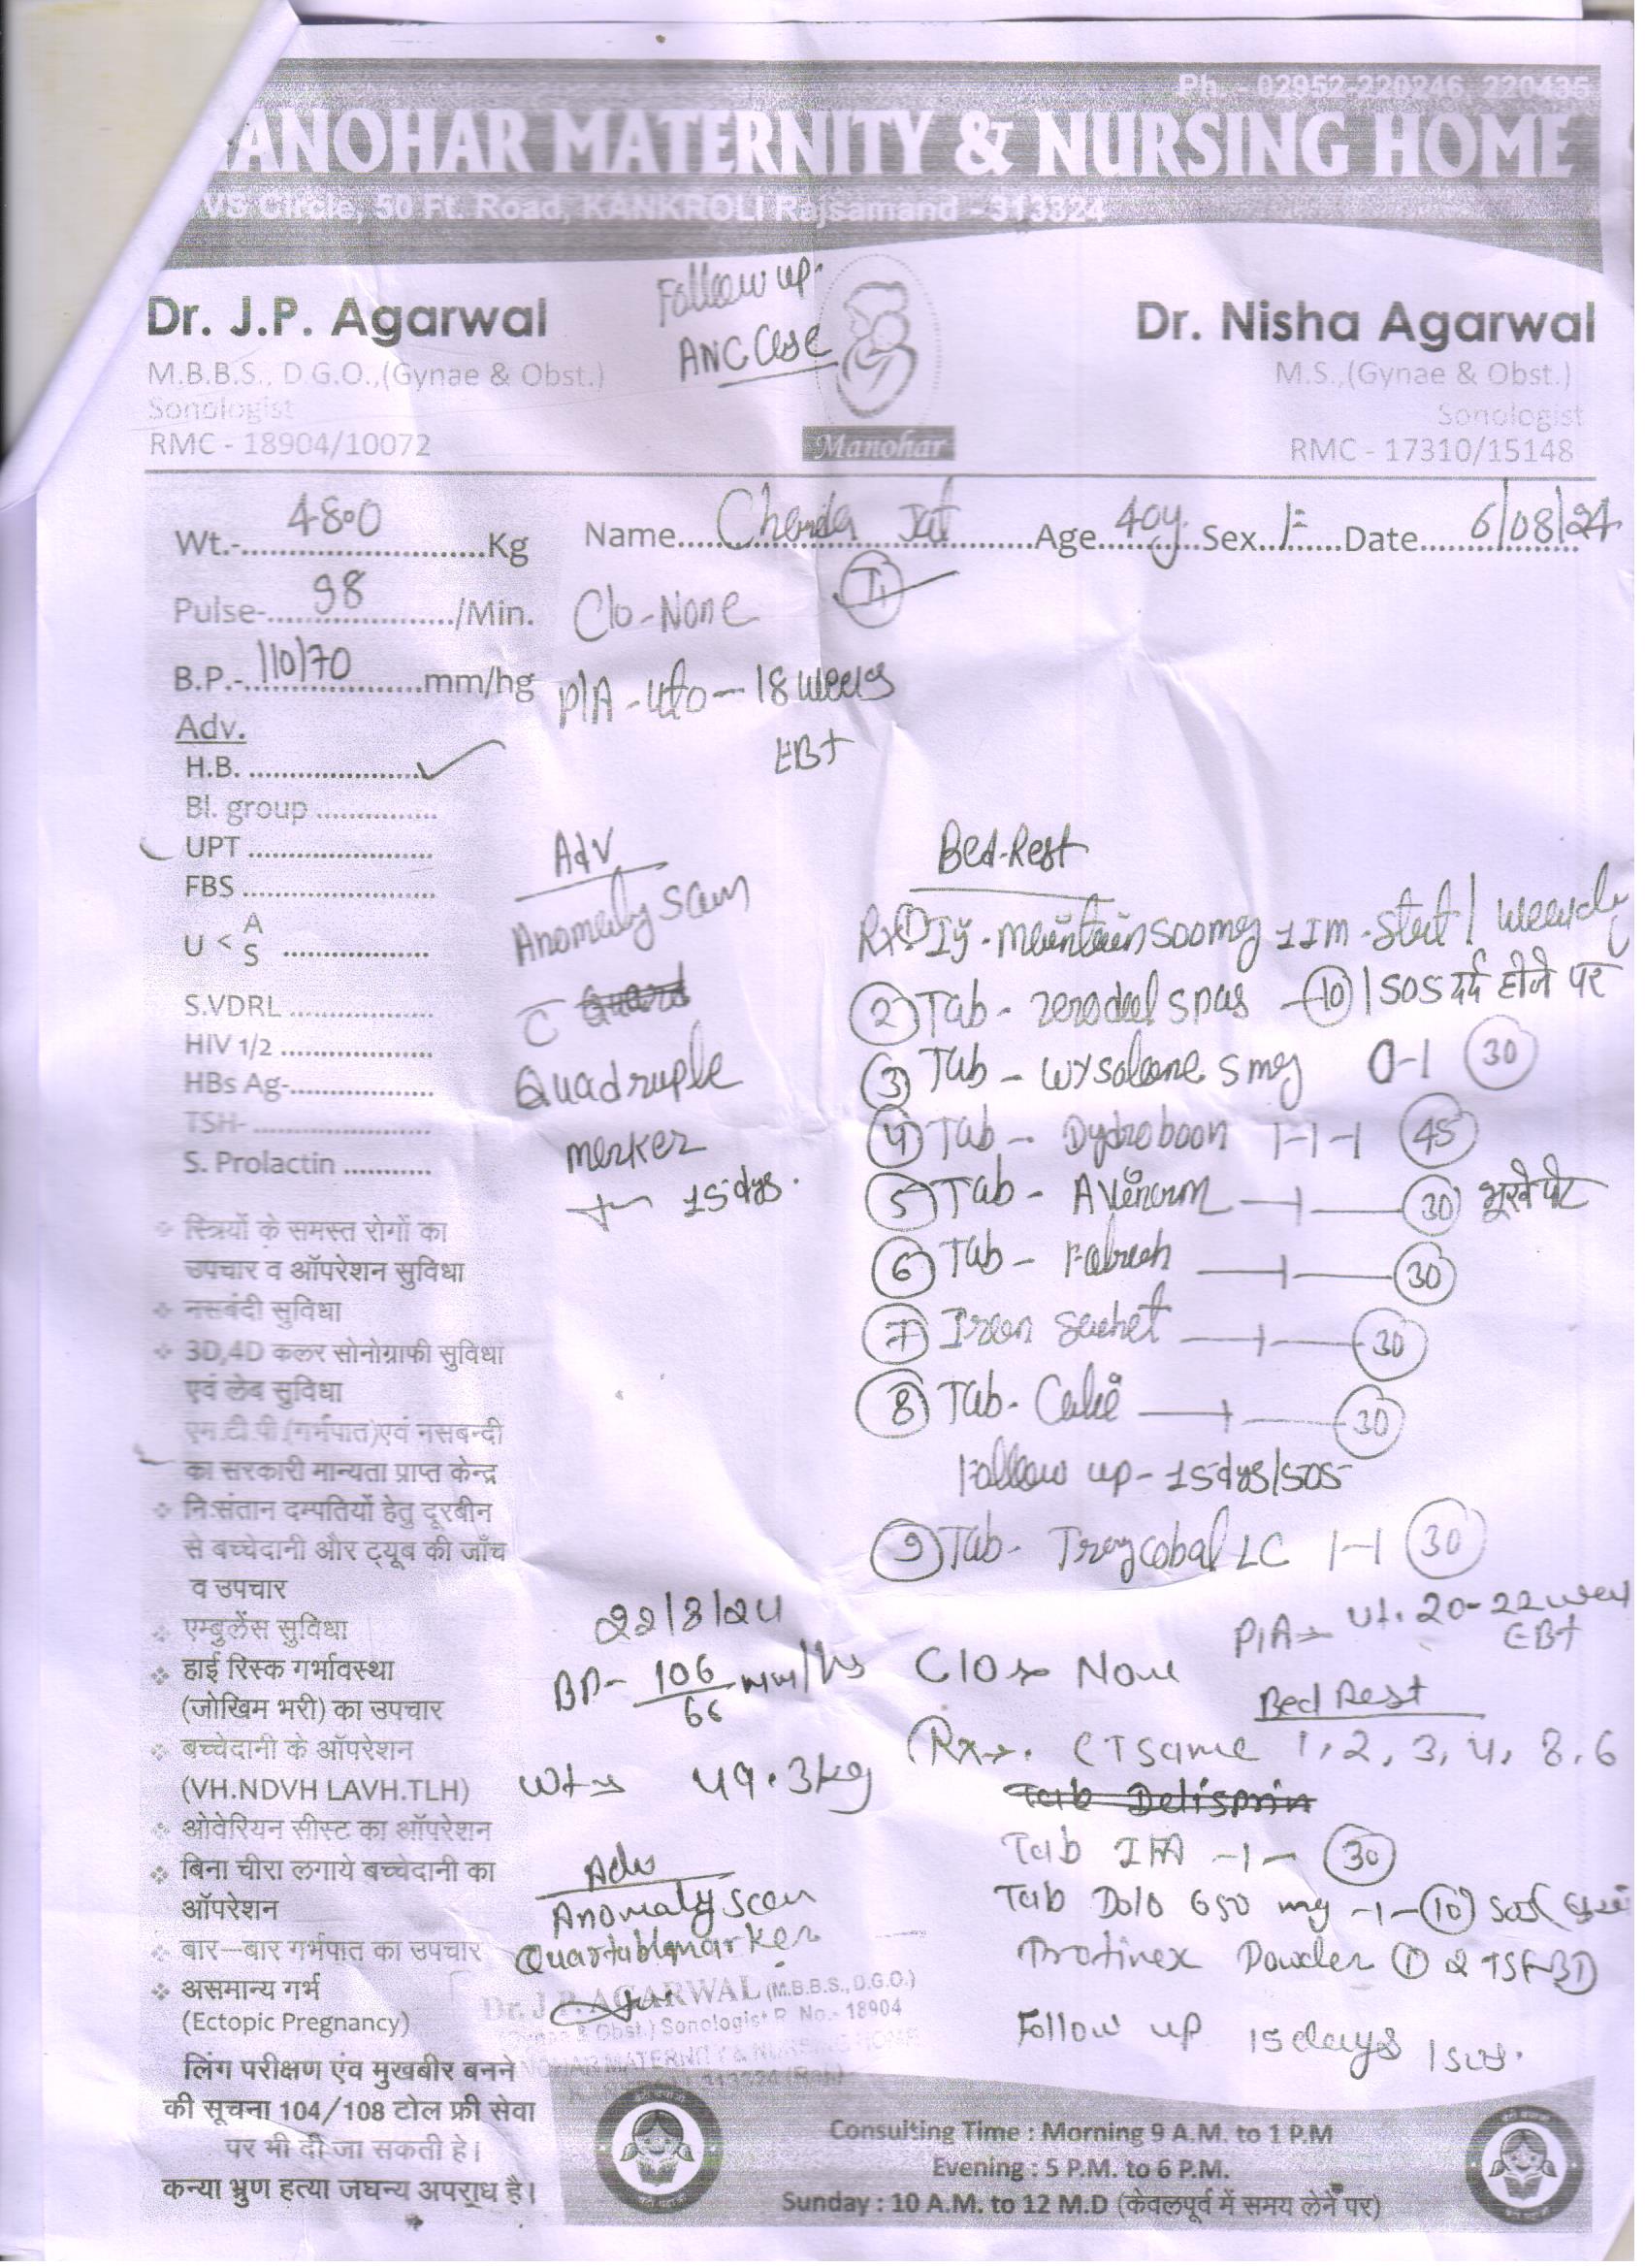 Ph. - 02952-220246, 220435
ANOHAR MATERNITY & NURSING HOME
VS Circle, 50 Ft. Road, KANKROLI Rajsamand - 313324
Follow up
ANC Case
Dr. J.P. Agarwal
M.B.B.S., D.G.O.,(Gynae & Obst.)
Sonologist
RMC - 18904/10072
Manohar
Dr. Nisha Agarwal
M.S.,(Gynae & Obst.)
Sonologist
RMC - 17310/15148
Wt.- 48.0 Kg
Name Chanda Jat Age 40y. Sex F Date 6/08/24
Pulse- 98 /Min.
C/o - None
B.P.- 110/70 mm/hg
P/A - - 18 weeks
EBt
Adv.
H.B.
Bl. group
UPT
FBS
U < A S
S.VDRL
HIV 1/2
HBs Ag-
TSH-
S. Prolactin
Adv
Anomaly Scan
c
Quadruple
marker
15 dys.
Bed-Rest
Rx ① Inj - maintain 500mg 1 IM - Stat / weekly
② Tab - zerodol spas - ⑩ / SOS दर्द होने पर
③ Tab - wysolone 5 mg 0-1 30
④ Tab - Dydroboon 1-1-1 45
⑤ Tab - 1 30 भूखे पेट
⑥ Tab - 1 30
⑦ Iron Sachet 1 30
⑧ Tab - 1 30
Follow up - 15 dys/SOS
⑨ Tab - Traycobal LC 1-1 30
❖ स्त्रियों के समस्त रोगों का
उपचार व ऑपरेशन सुविधा
❖ नसबंदी सुविधा
❖ 3D,4D कलर सोनोग्राफी सुविधा
एवं लेब सुविधा
एम.टी.पी.(गर्भपात)एवं नसबन्दी
का सरकारी मान्यता प्राप्त केन्द्र
❖ नि:संतान दम्पतियों हेतु दूरबीन
से बच्चेदानी और ट्यूब की जाँच
व उपचार
❖ एम्बुलेंस सुविधा
❖ हाई रिस्क गर्भावस्था
(जोखिम भरी) का उपचार
❖ बच्चेदानी के ऑपरेशन
(VH.NDVH LAVH.TLH)
❖ ओवेरियन सीस्ट का ऑपरेशन
❖ बिना चीरा लगाये बच्चेदानी का
ऑपरेशन
❖ बार–बार गर्भपात का उपचार
❖ असमान्य गर्भ
(Ectopic Pregnancy)
लिंग परीक्षण एंव मुखबीर बनने
की सूचना 104/108 टोल फ्री सेवा
पर भी दी जा सकती हे।
कन्या भ्रुण हत्या जघन्य अपराध है।
22/8/24
BP- 106/66 mm/hg
Wt 49.3 kg
Adv
Anomaly scan
marker
C/o None
P/A Ut. 20-22 week
EBt
Bed Rest
Rx CT Same 1, 2, 3, 4, 8, 6
Tab Delisprin
Tab IFA -1- 30
Tab Dolo 650 mg -1- ⑩ SOS
Protinex Powder ① 2 TSF BD
Follow up 15 days / SOS.
Dr. J.P. AGARWAL (M.B.B.S., D.G.O.)
(Gynae & Obst.) Sonologist R. No.- 18904
MANOHAR MATERNITY & NURSING HOME
313324 (Raj.)
Consulting Time : Morning 9 A.M. to 1 P.M
Evening : 5 P.M. to 6 P.M.
Sunday : 10 A.M. to 12 M.D (केवलपूर्व में समय लेने पर)